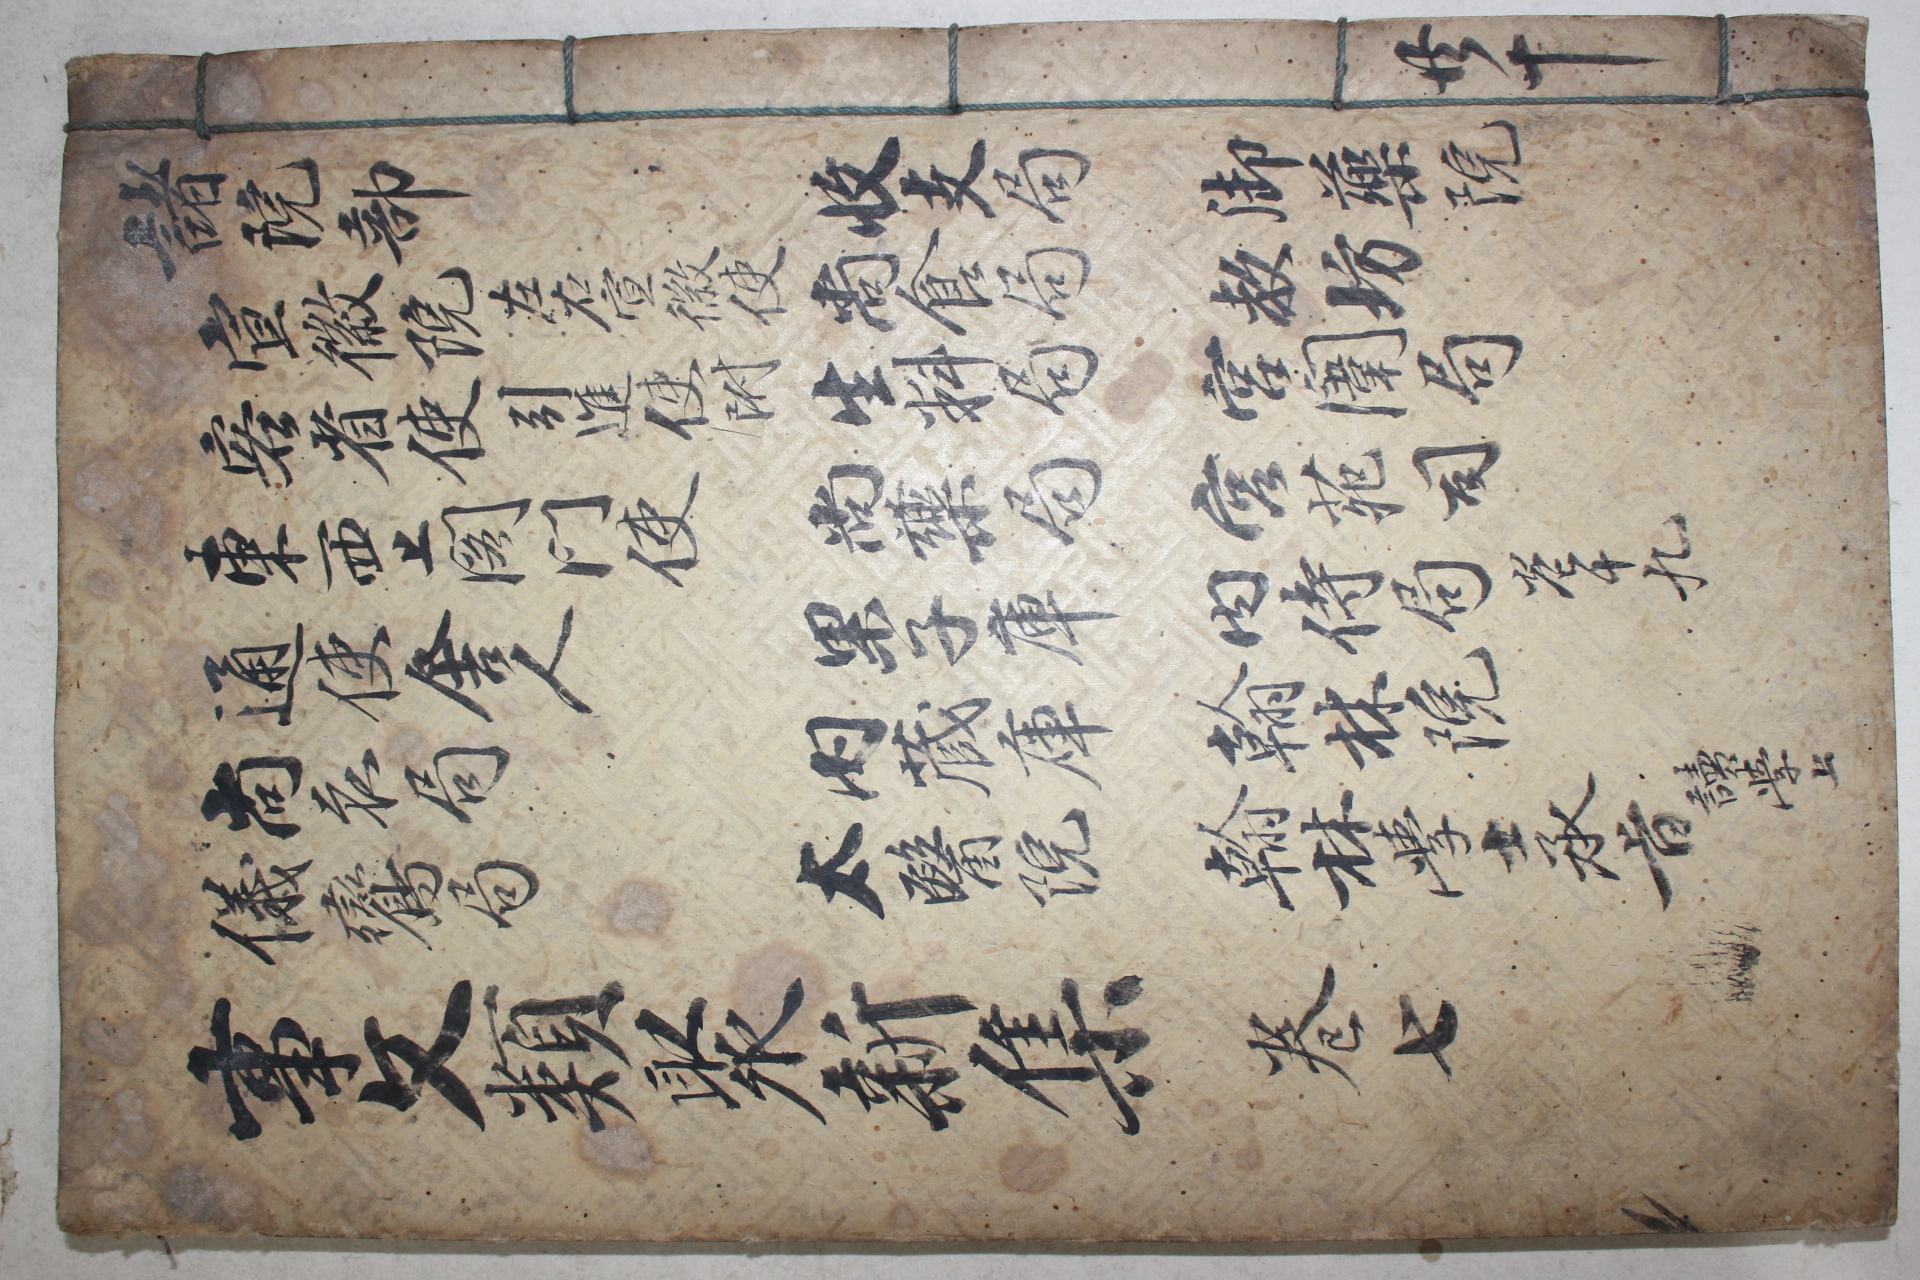 諸院部
宣徽院 左右宣徽使
客省使 引進使附
東西上閣門使
通使舍人
尚衣局
儀鸞局
收支局
尚食局
生料局
尚藥局
果子庫
內藏庫
太醫院
御藥院
教坊
宮闈局
宮苑司
內侍局 卷十九
翰林院
翰林學士承旨 讀學上
事文類聚新集 卷七
共十